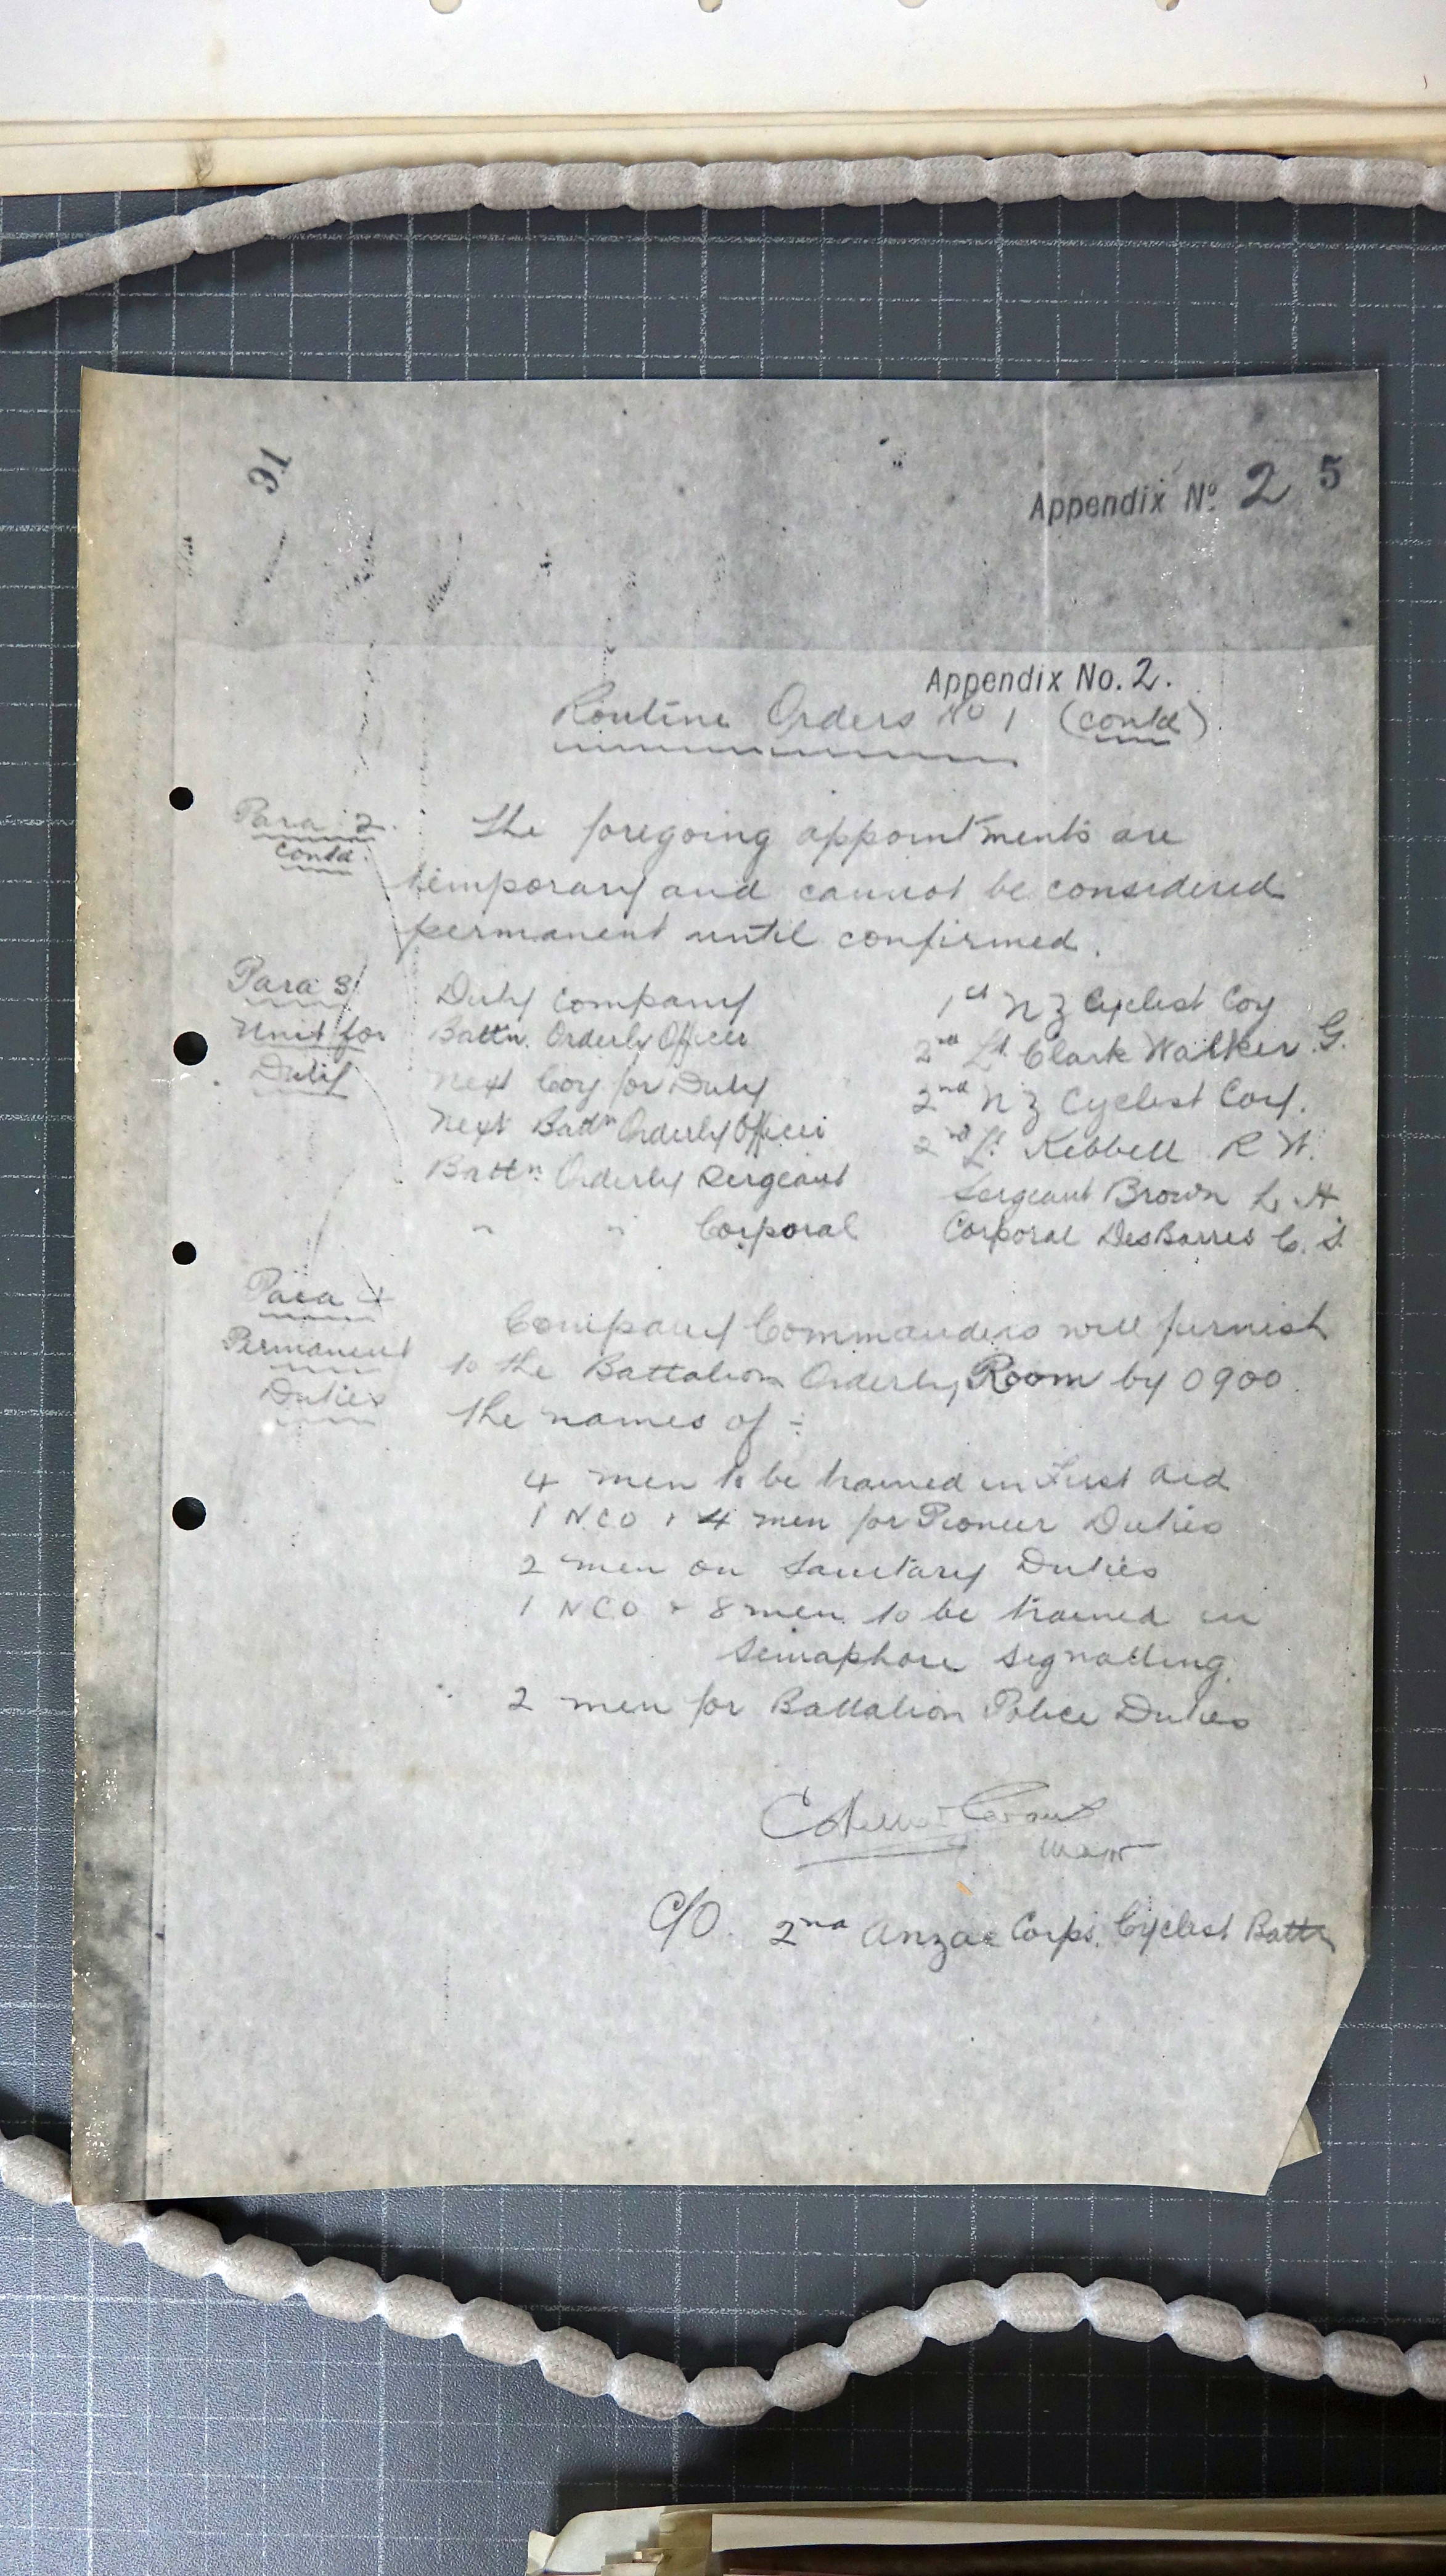 91
Appendix No. 2 5
Appendix No. 2.
Routine Orders No 1 (contd)
Para 2.
contd.
The foregoing appointments are
temporary and cannot be considered
permanent until confirmed.
Para 3
Unit for
Duty
Duty Company 1st NZ Cyclist Coy
Battn. Orderly Officer 2nd Lt. Clark Walker G.
Next Coy for Duty 2nd NZ Cyclist Coy.
Next Battn Orderly Officer 2nd Lt. Kebbell R W.
Battn. Orderly Sergeant Sergeant Brown L H
" " Corporal Corporal DesBarres C. S.
Para 4
Permanent
Duties
Company Commanders will furnish
to the Battalion Orderly Room by 0900.
the names of :-
4 men to be trained in First Aid
1 NCO + 4 men for Pioneer Duties
2 men on Sanitary Duties
1 NCO + 8 men to be trained in
Semaphore Signalling.
2 men for Battalion Police Duties
Major
C/O. 2nd Anzac Corps. Cyclist Battn